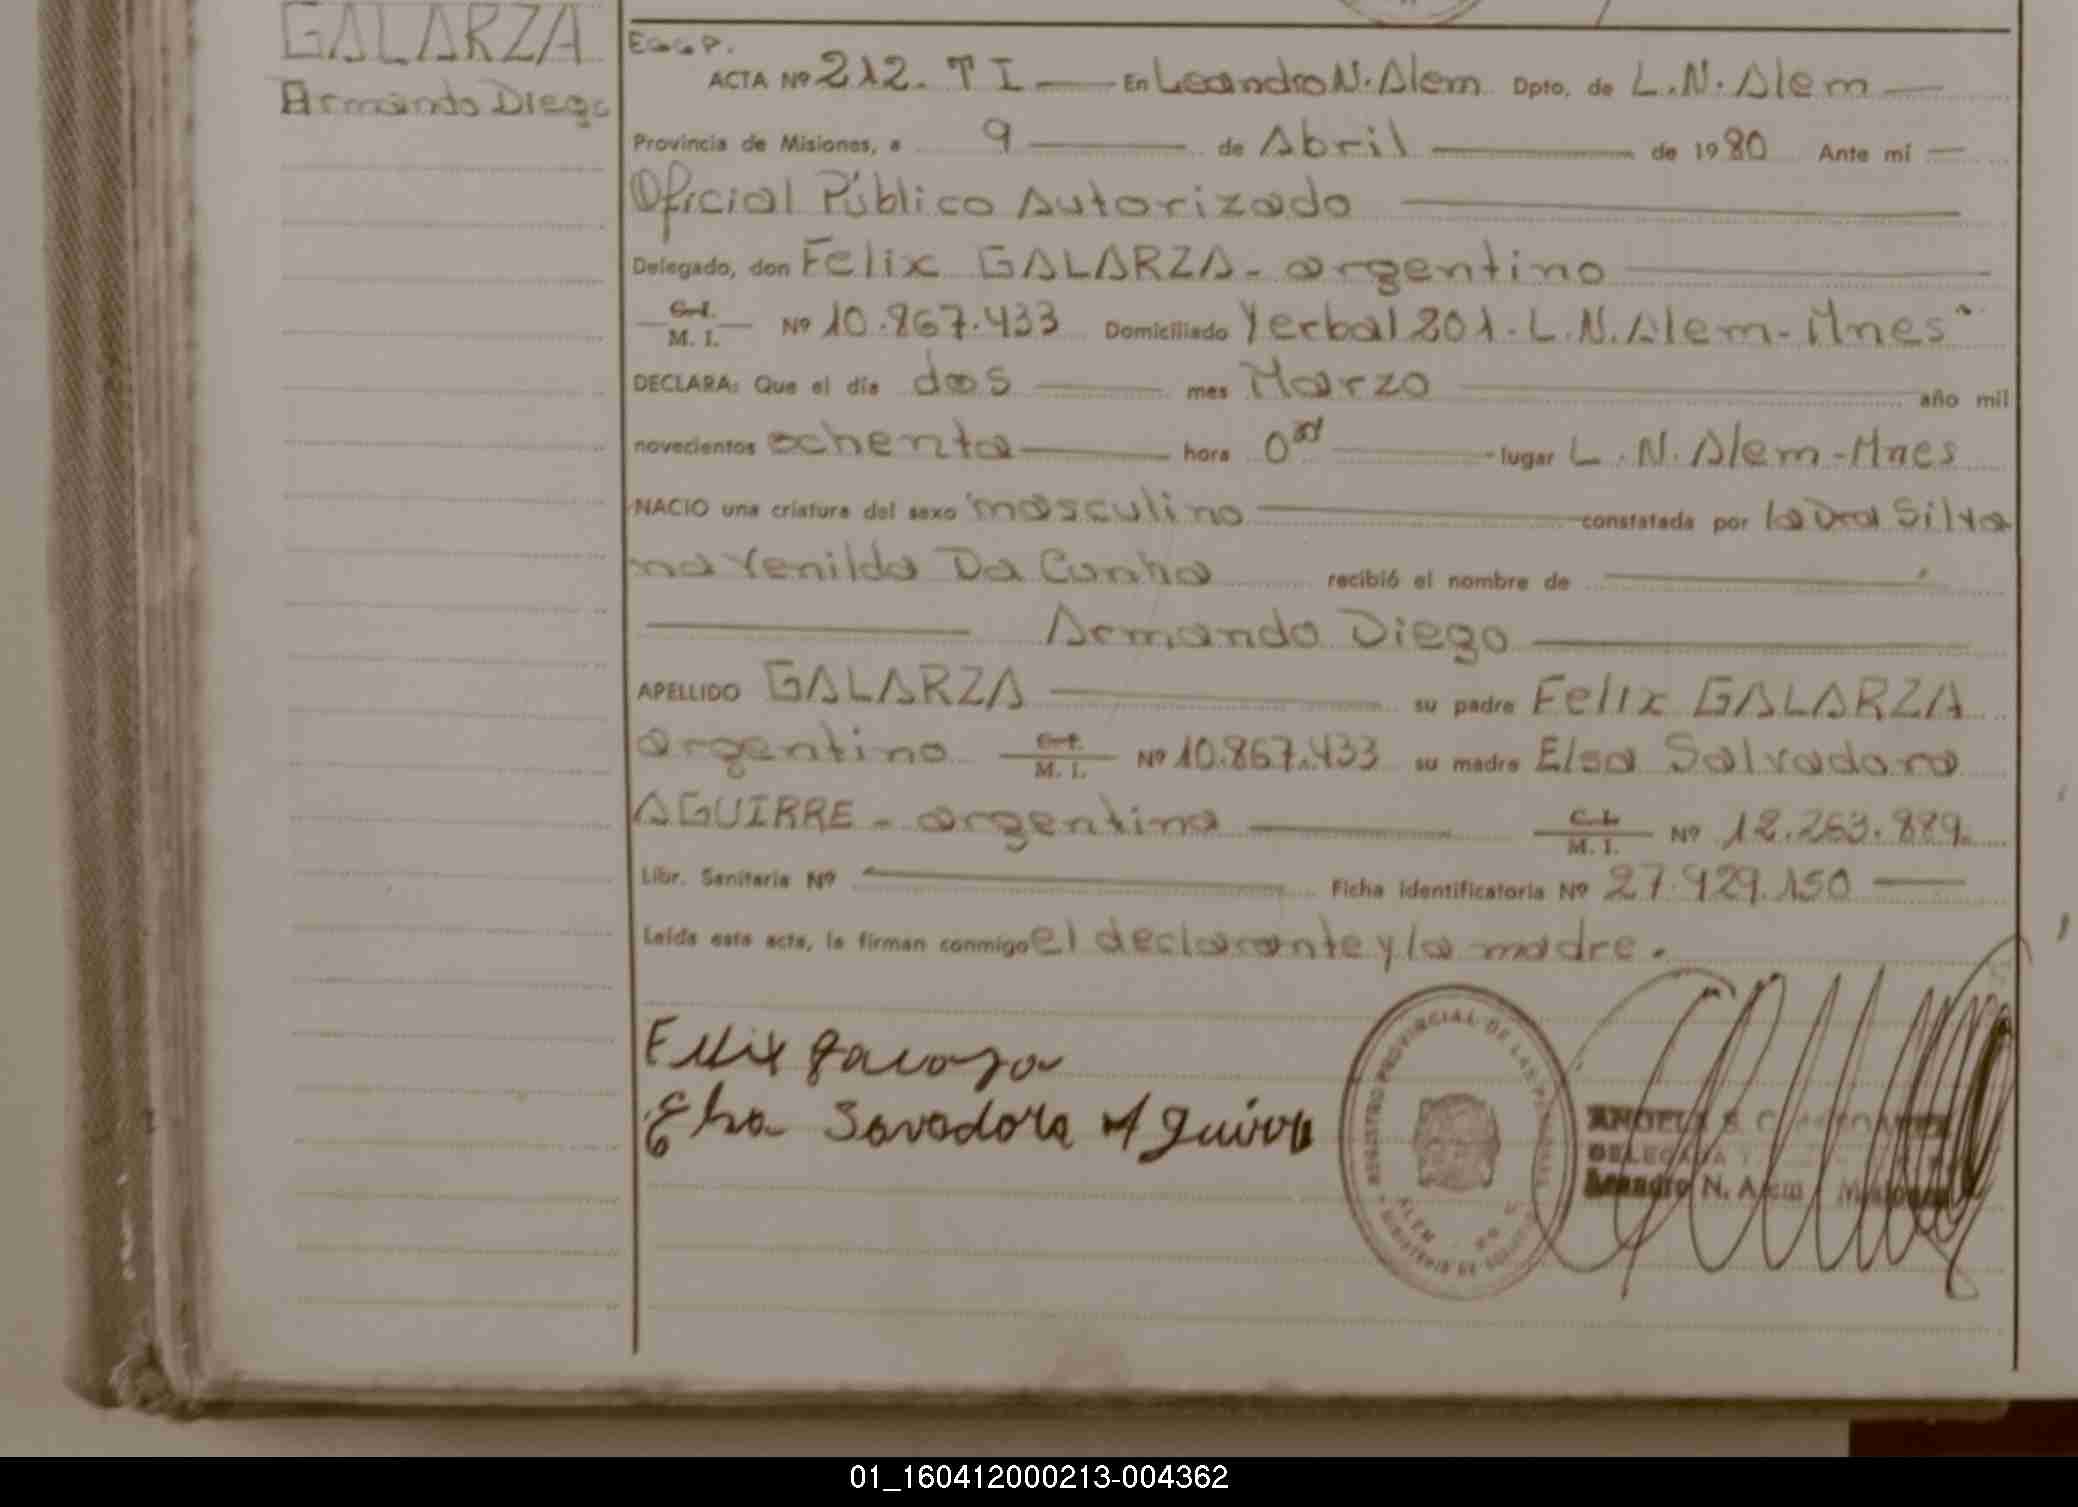 GALARZA
Armando Diego
ACTA Nº 212. T I — En Leandro N. Alem Dpto. de L.N. Alem —
Provincia de Misiones, a 9 — de Abril — de 1980 Ante mí —
Oficial Público Autorizado —
Delegado, don Felix GALARZA - argentino —
C.I. M. I. Nº 10.867.433 Domiciliado Yerbal 201. L.N. Alem - Mnes
DECLARA: Que el día dos — mes Marzo — año mil
novecientos ochenta — hora 0 — lugar L. N. Alem - Mnes
NACIO una criatura del sexo masculino — constatada por la Dra Silva
na Yenilda Da Cunha recibió el nombre de —
— Armando Diego —
APELLIDO GALARZA — su padre Felix GALARZA
argentino C.I. M. I. Nº 10.867.433 su madre Elsa Salvadora
AGUIRRE - argentina — C.I. M. I. Nº 12.263.889.
Libr. Sanitaria Nº — Ficha identificatoria Nº 27.929.150 —
Leída esta acta, la firman conmigo el declarante y la madre.
REGISTRO PROVINCIAL DE LAS PERSONAS
ALEM
MINISTERIO DE
Elsa Savadora Aguirre
DELEGADA
Leandro N. Alem Misiones
01_160412000213-004362